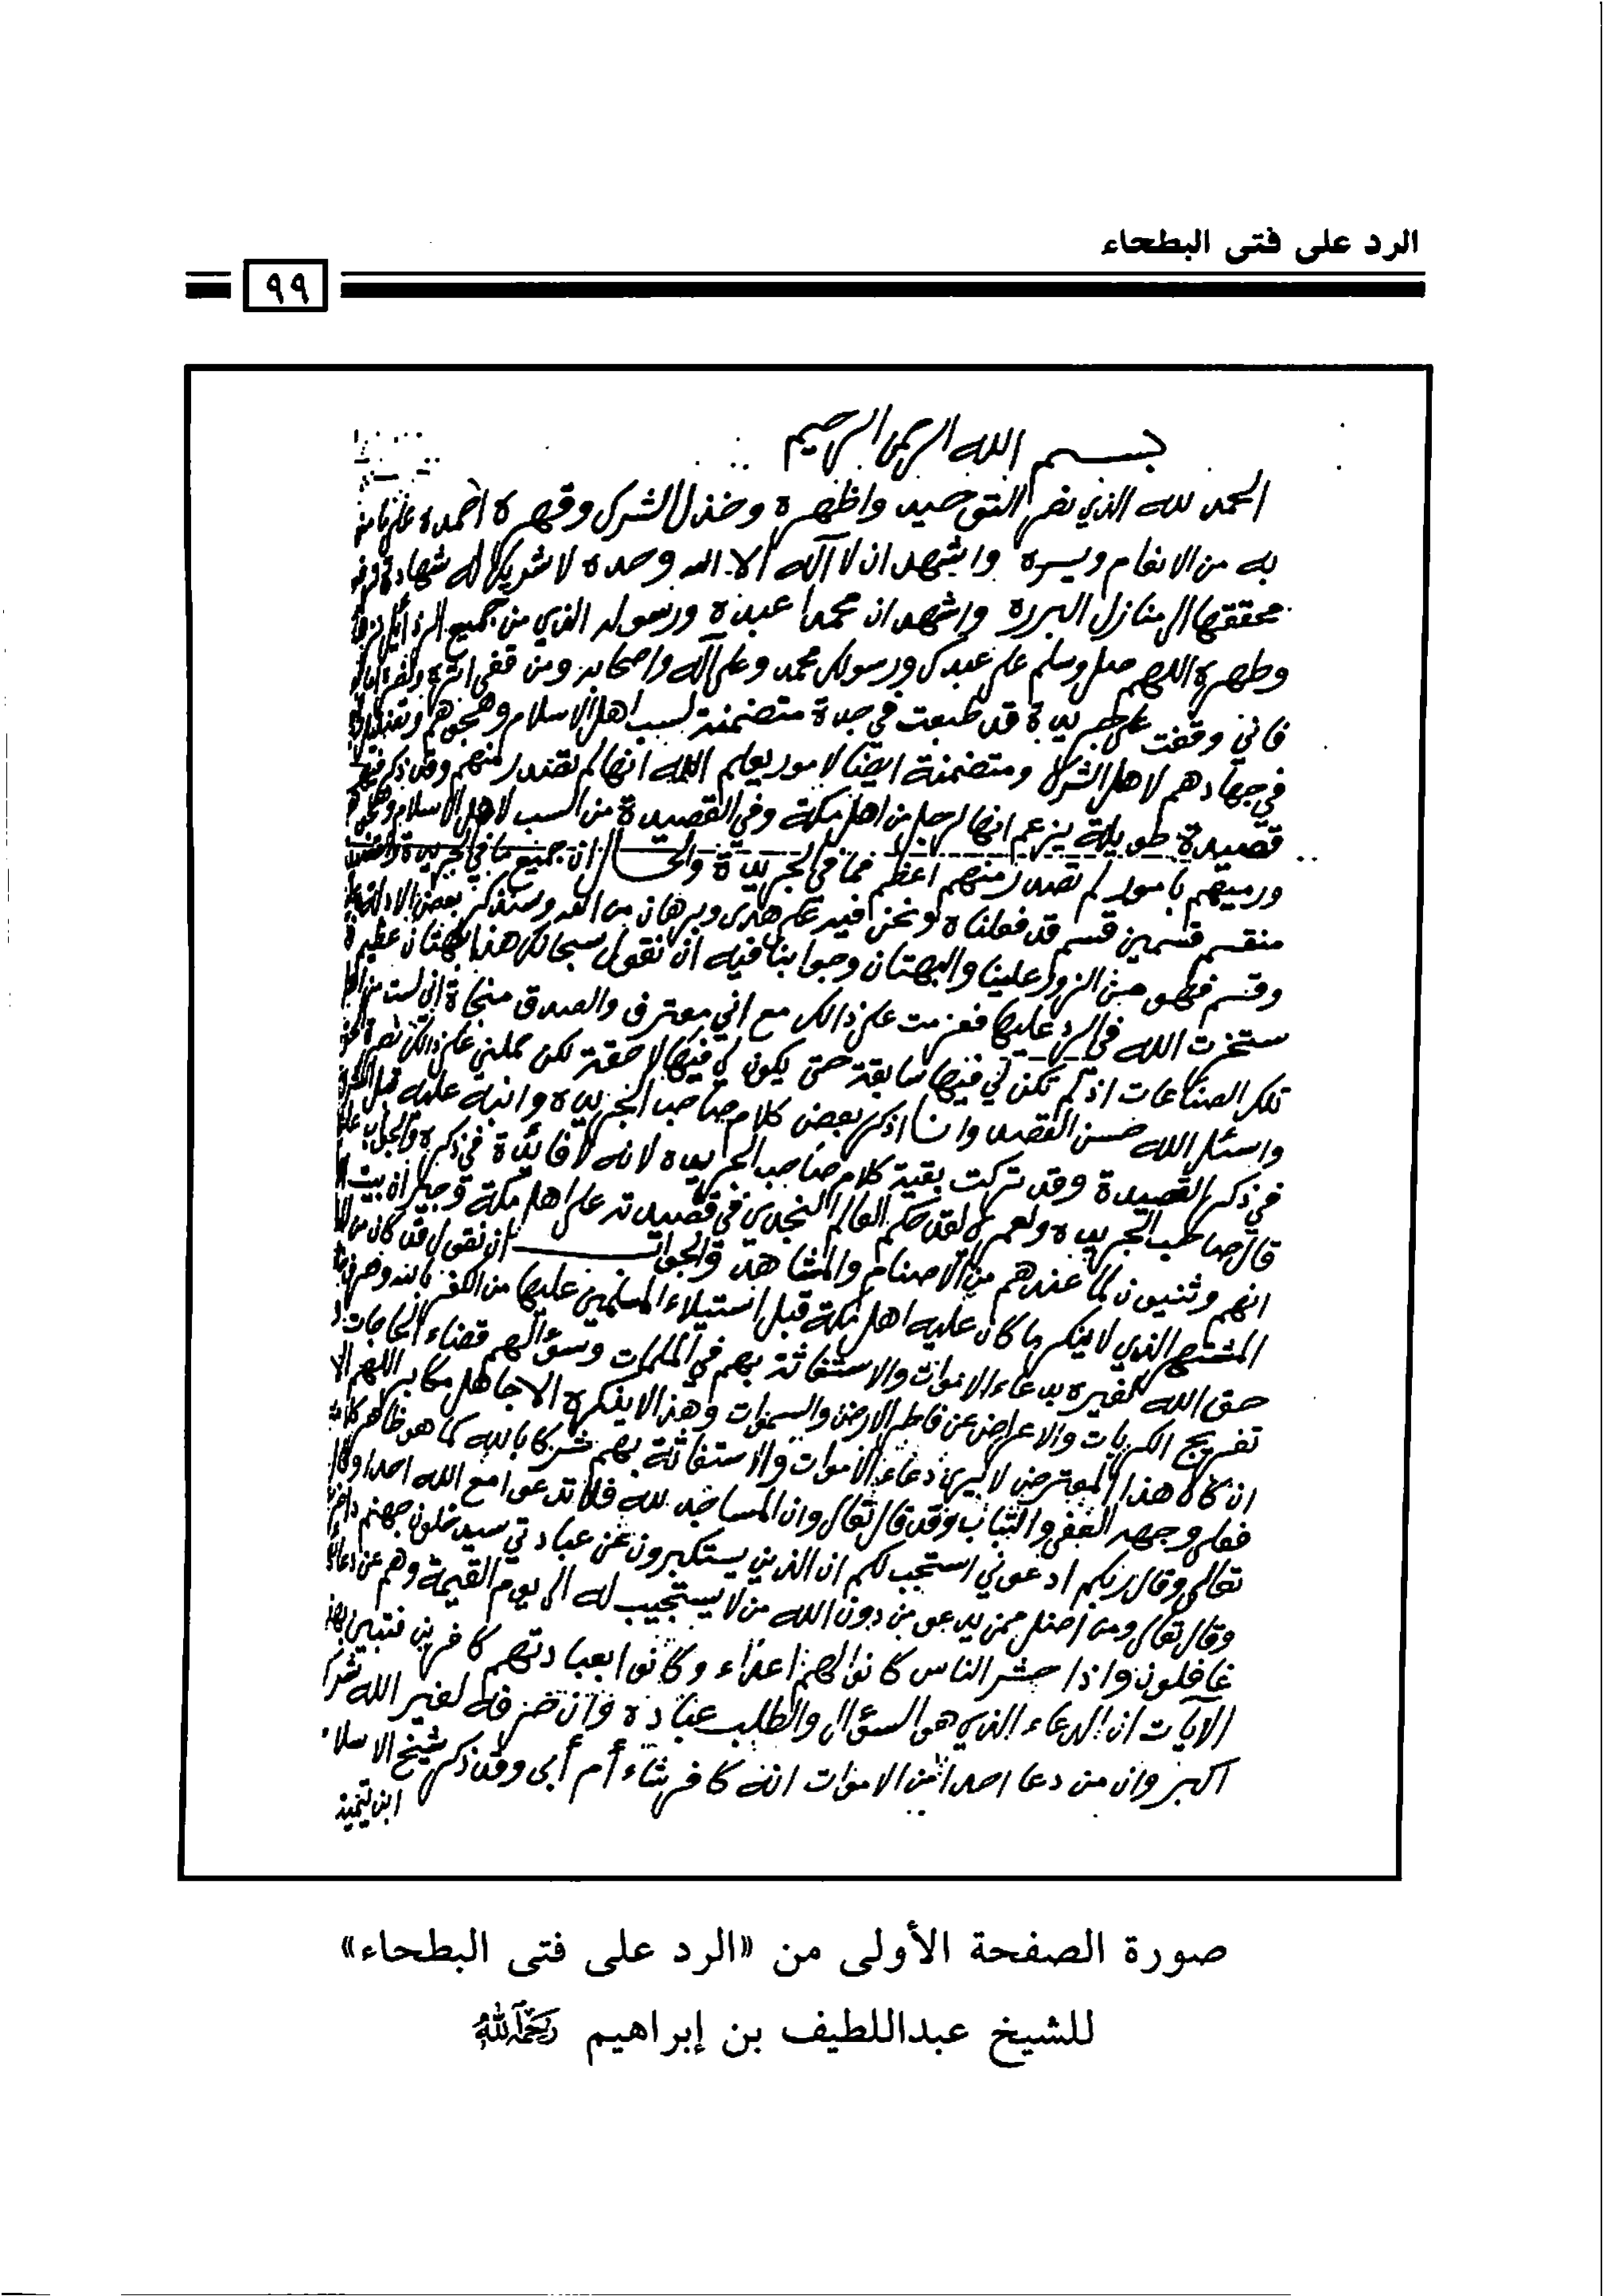 الرد على فتى البطحاء
٩٩
بسم الله الرحمن الرحيم
الحمد لله الذي نصر التوحيد واظهره وخذل الشرك وقهره احمده على ما من
به من الانعام ويسره واشهد ان لا اله الا الله وحده لا شريك له شهادة
محققها الى منازل البرره واشهد ان محمدا عبده ورسوله الذي من جميع الرذائل
وطهره اللهم صل وسلم على عبدك ورسولك محمد وعلى آله واصحابه ومن قفى اثره
فاني وقفت على جريدة قد طبعت في جدة متضمنة لسب اهل الاسلام وهجوهم
في جهادهم لاهل الشرك ومتضمنة ايضا لامور يعلم الله انها لم تصدر منهم وقد ذكر فيها
قصيدة طويلة يزعم انها لرجل من اهل مكة وفي القصيدة من السب لاهل الاسلام
ورميهم بامور لم تصدر منهم اعظم مما في الجريدة والحال ان جميع ما في الجريدة
منقسم قسمين قسم قد فعلناه ونحن فيه على هدى وبرهان من الله وسنذكر بعض الادلة
وقسم فهو من الزور علينا والبهتان وجوابنا فيه ان نقول سبحانك هذا بهتان عظيم
ستخرت الله في الرد عليها فعزمت على ذالك مع اني معترف والصدق منجاة اني لست من اهل
تلك الصناعات اذ لم تكن لي فيها سابقة حتى يكون لي فيها لاحقة لكن حملني على ذالك
واسئل الله حسن القصد وانا اذكر بعض كلام صاحب الجريده وانبه عليه قبل
في ذكر القصيدة وقد تركت بقية كلام صاحب الجريده لانه لا فائدة في ذكره
قال صاحب الجريده ولعمري لقد حكم العالم النجدي في قصيدته على اهل مكة وجيران بيت
انهم وثنيون لما عندهم من الاصنام والمشاهد والجواب ان نقول قد كان من
المشتهر الذي لا ينكر ما كان عليه اهل مكة قبل استيلاء المسلمين عليها من الكفر بالله وصرف
حق الله لغيره بدعاء الاموات والاستغاثة بهم في الملمات وسؤالهم قضاء الحاجات
تفريج الكربات والاعراض عن فاطر الارض والسموات وهذا لا ينكره الا جاهل مكابر اللهم الا
ان كان هذا المعترض لا يرى دعاء الاموات والاستغاثة بهم شركا بالله كما هو ظاهر
فعلى وجهه العفى والتباب وقد قال تعالى وان المساجد لله فلا تدعوا مع الله احدا وقال
تعالى وقال ربكم ادعوني استجب لكم ان الذين يستكبرون عن عبادتي سيدخلون جهنم داخرين
وقال تعالى ومن اضل ممن يدعو من دون الله من لا يستجيب له الى يوم القيمة وهم عن دعائهم
غافلون واذا حشر الناس كانوا لهم اعداء وكانوا بعبادتهم كافرين فتبين بهذه
الآيات ان الدعاء الذي هو السؤال والطلب عبادة وان صرفه لغير الله شرك
اكبر وان من دعا احدا من الاموات انه كافر شاء أم أبى وقد ذكر شيخ الاسلام
ابن تيمية
صورة الصفحة الأولى من «الرد على فتى البطحاء»
للشيخ عبداللطيف بن إبراهيم رحمه الله